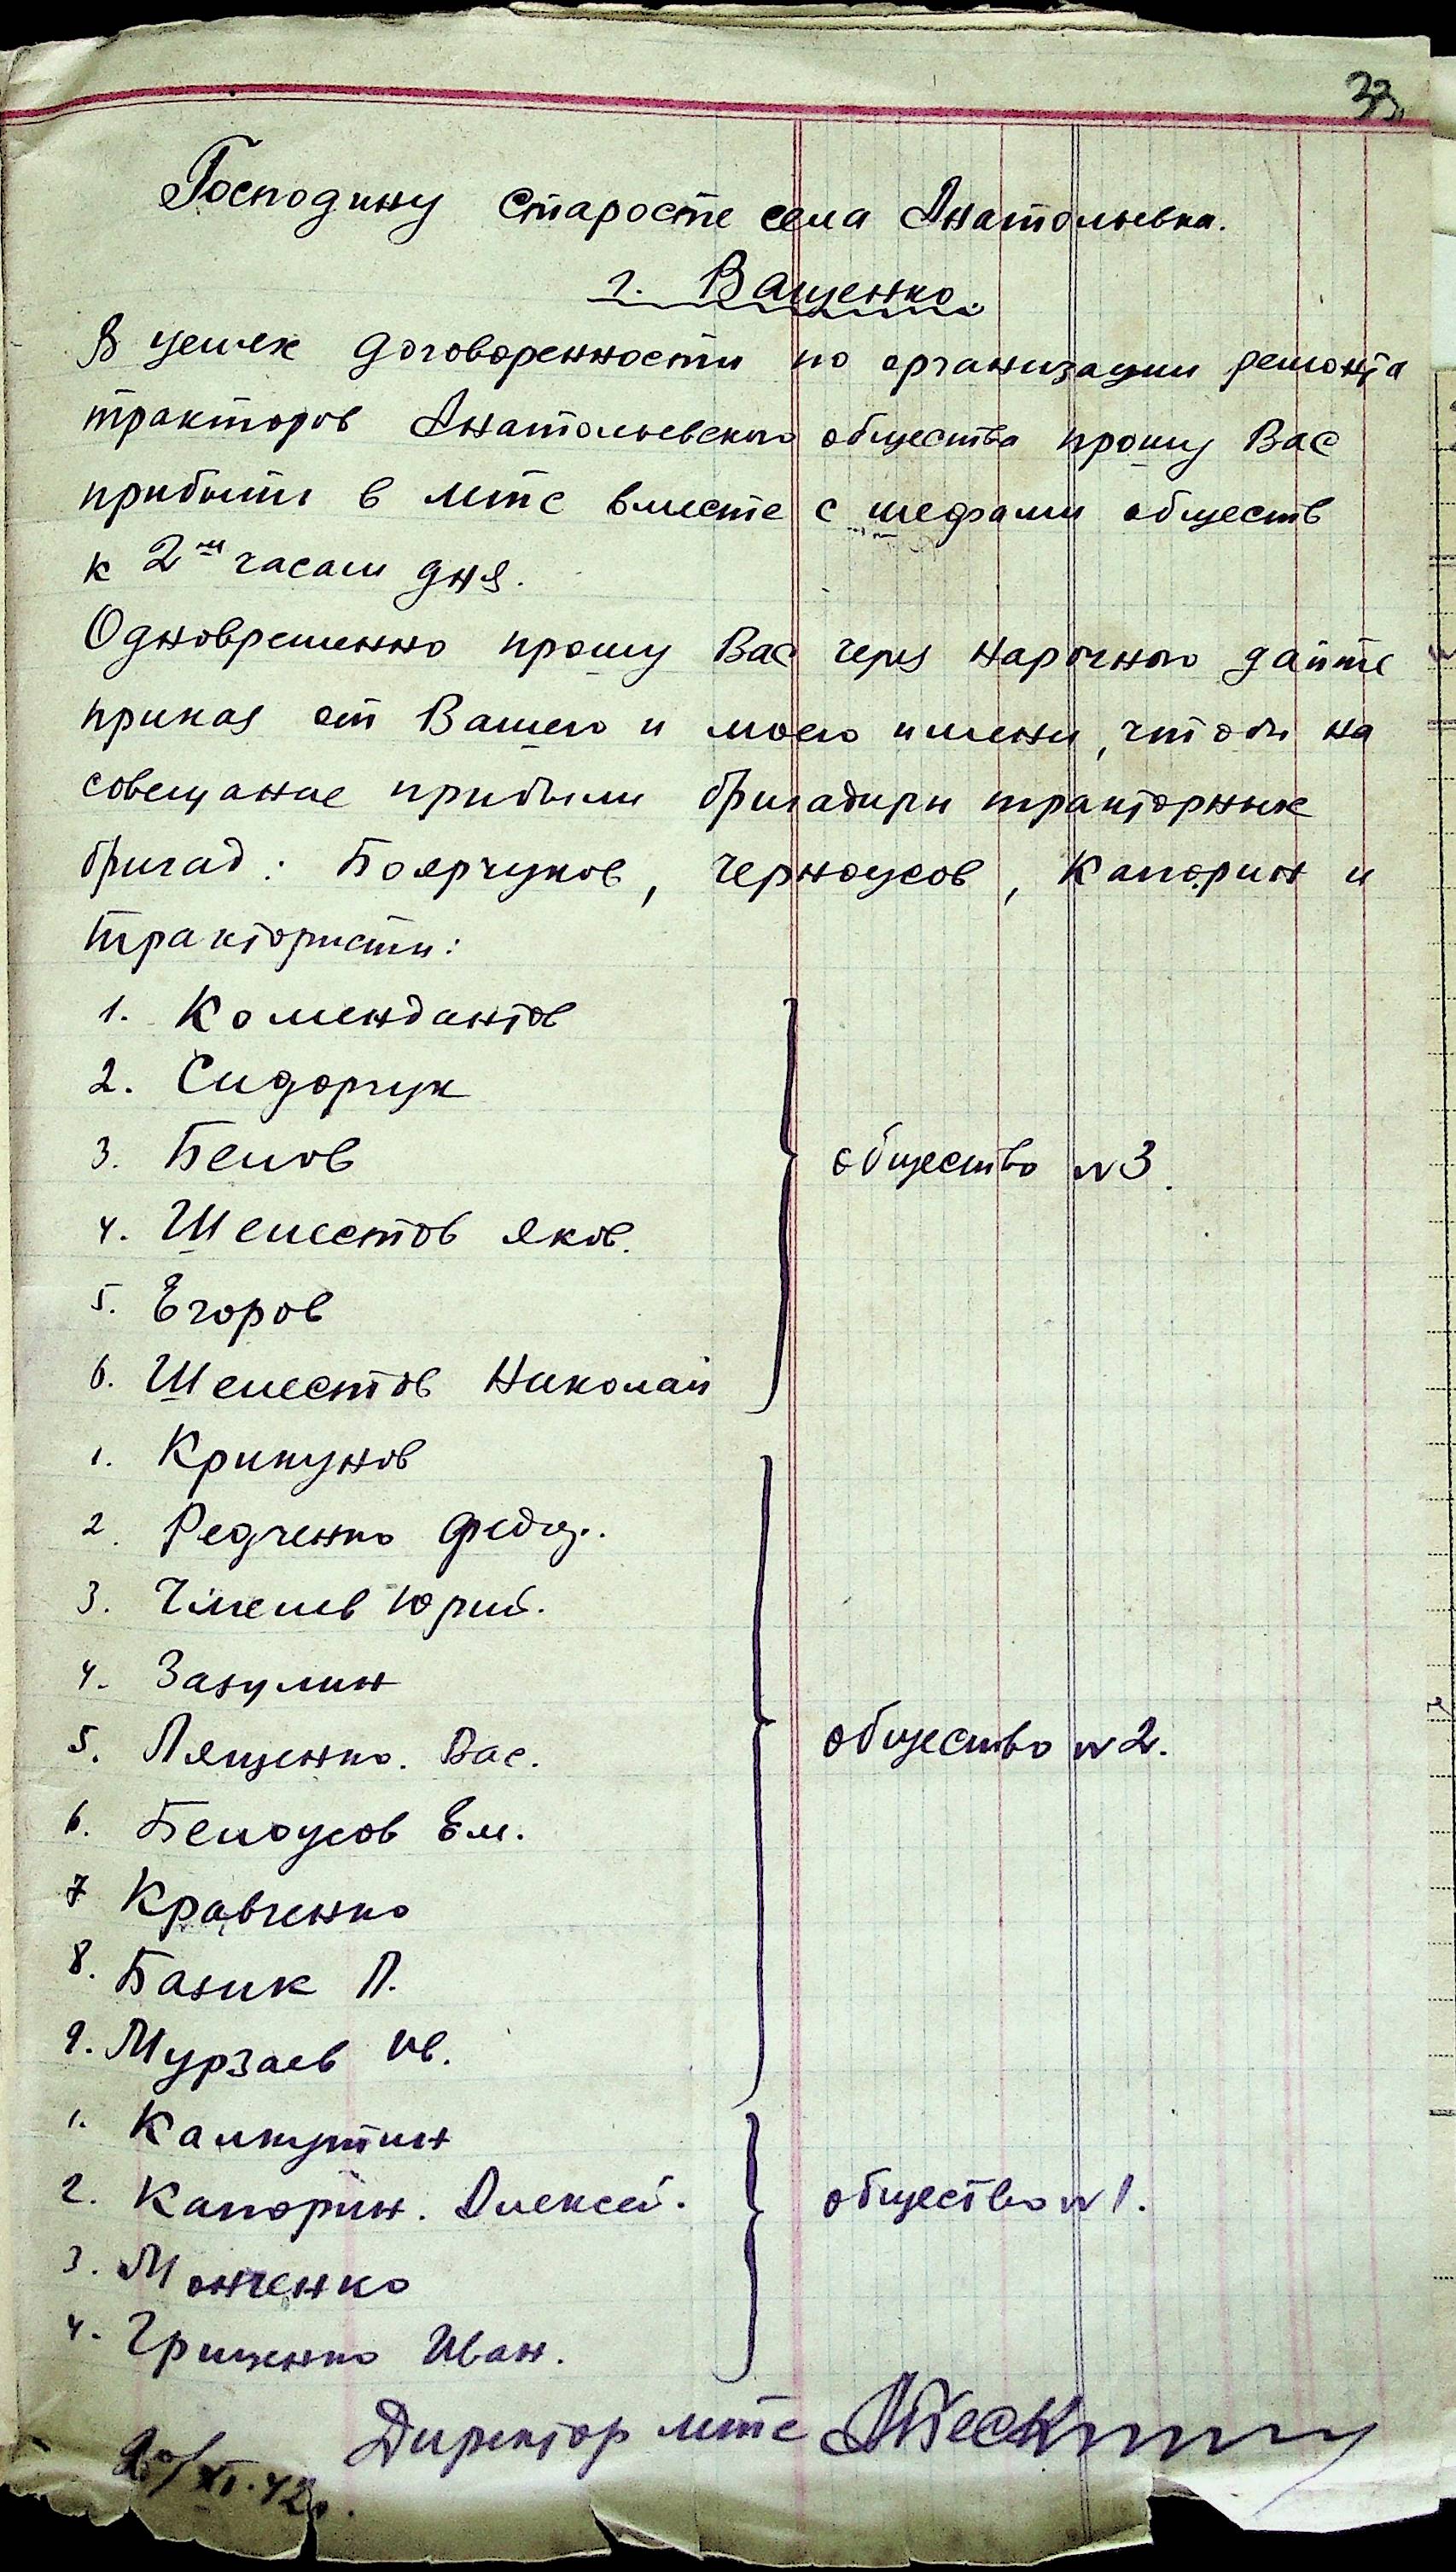 33
Господину старосте села Анатольевка.
г. Ващенко.
В целях договоренности по организации ремонта
тракторов Анатольевского общества прошу Вас
прибыть в мтс вместе с шефами обществ
к 2м часам дня.
Одновременно прошу Вас через нарочного дайте
приказ от Вашего и моего имени, чтобы на
совещание прибыли бригадиры тракторных
бригад: Боярчуков, Черноусов, Капорин и
трактористы:
1. Комендантов
2. Сидорчук
3. Белов
4. Шелестов Яков.
5. Егоров
6. Шелестов Николай
общество №3.
1. Крикунов
2. Редченко Федор.
3. Юрий.
4. Зазулин
5. Лященко. Вас.
6. Белоусов Ем.
7 Кравченко
8. Базик П.
9. Мурзаев Ив.
общество №2.
1. Калкутин
2. Капорин. Алексей.
3. Монченко
4. Грищенко Иван.
общество №1.
Директор мтс
20/XI.42г.